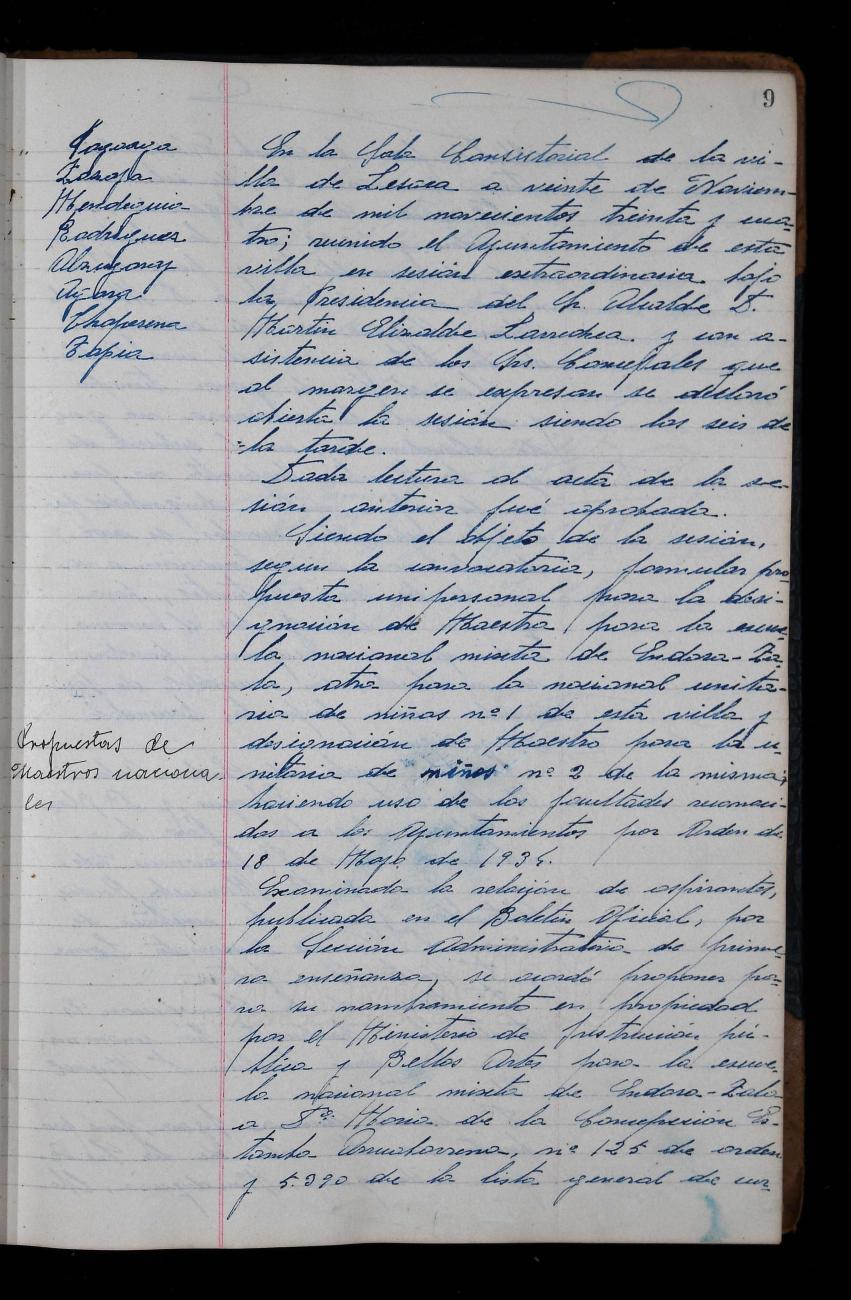 9
Zozaya
Mendiguia
Rodriguez
Tapia
En la Sala Consistorial de la vi-
lla de Lesaca a veinte de Noviem-
bre de mil novecientos treinta y cua-
tro; reunido el Ayuntamiento de esta
villa en sesión extraordinaria bajo
la Presidencia del Sr. Alcalde D.
Martín Elizalde Larrechea. y con a-
sistencia de los Srs. Concejales que
al margen se expresan se declaró
abierta la sesión siendo las seis de
la tarde.
Dada lectura al acta de la se-
sión anterior fué aprobada.
Siendo el objeto de la sesión,
segun la convocatoria, formular pro
puesta unipersonal para la desi-
gnación de Maestra para la escue-
la nacional mixta de Endara-Za
la, otra para la nacional unita-
ria de niñas nº 1 de esta villa y
Propuestas de
Maestros naciona-
les
designación de Maestro para la u-
nitaria de niños nº 2 de la misma;
haciendo uso de las facultades reconoci-
das a los Ayuntamientos por Orden de
18 de Mayo de 1934.
Examinada la relación de aspirantes,
publicada en el Boletín Oficial, por
la Sección Administrativa de prime-
ra enseñanza, se acordó proponer pa-
ra su nombramiento en propiedad
por el Ministerio de Instrucción pú-
blica y Bellas Artes para la escue-
la nacional mixta de Endara-Zala
a Dª Maria de la Concepción Es-
tomba, nº 125 de orden
y 5.390 de la lista general de cur-